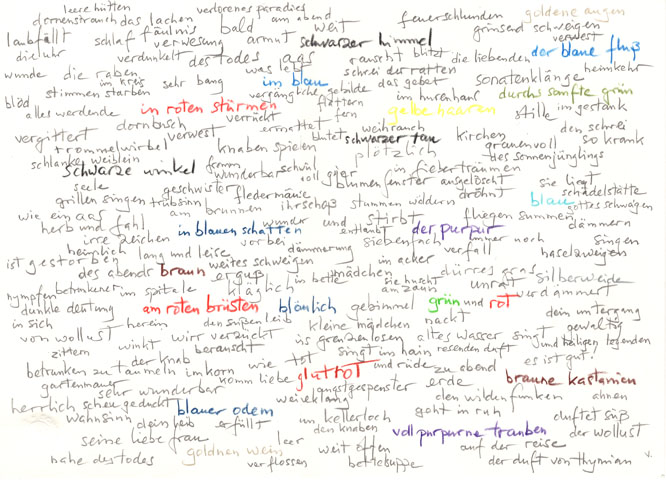 leere hütten verlorenes paradies feuerschlunden goldene augen
dornenstrauch das lachen bald am abend weit grinsend schweigen
laubfällt schlaf fäulnis verwesung armut schwarzer himmel verwest
die uhr verdunkelt des todes aas rauscht blitzt die liebenden der blaue fluß
wunde die raben was lebt schrei der ratten heimkehrt
im kreis sehr bang im blau das gebet sonatenklänge
stimmen starben gebilde im hurenhaus durchs sanfte grün
blöd alles werdende in roten stürmen flattern gelbe haaren stille im gestank
dornbusch verrückt fern
vergittert verwest ermattet weihrauch den schrei
trommelwirbel knaben speien blutet schwarzer tau kirchen grauenvoll so krank
schlanke weiblein plötzlich des sonnenjünglings
schwarze winkel fromm wunderbar schwül voll gier in fieberträumen
seele geschwister blumenfenster ausgelöscht sie liegt schädelstätte
grillen singen trübsinn fledermäuse dröhnt blau gottes schweigen
wie ein aas am brunnen ihr schoß stummen wäldern
herb und fahl wunder und stirbt fliegen summen dämmern
irre zeichen in blauen schatten entlaubt der purpur
heimlich vorbei siebenfach immer noch singen
ist gestorben lang und leise dämmerung verfall haselzweigen
des abends braun weites schweigen im acker
erguß in bette mädchen dürres gras silberweide
nymphen betrunkener im spitale kläglich sie huscht am zaun unrat verdämmert
dunkle deutung am roten brüsten bläulich gebimmel grün und rot dein untergang
in sich herein den süßen leib kleine mädchen nackt gewaltig
von wollust winkt wirr verzückt ins grenzenlosen altes wasser singt und heiligen legenden
zittern berauscht singt im hain
der knab wie tot und rüde zu abend es ist gut!
betrunken zu taumeln im korn gluttot
gartenmauer sehr wunderbar komm liebe angstgespenster erde braune kastanien
herrlich scheu geduckt weiheklang den wilden funken ahnen
wahnsinn blauer odem im kellerloch geht in ruh duftet süß
dein leib erfüllt den knaben voll purpurne trauben der wollust
seine liebe frau leer weit offen auf der reise
nahe des todes goldnen wein verflossen bettelsuppe der duft von thymian